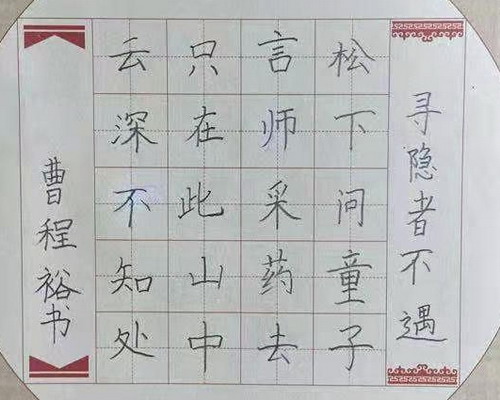 寻隐者不遇
松下问童子
言师采药去
只在此山中
云深不知处
曹程裕书